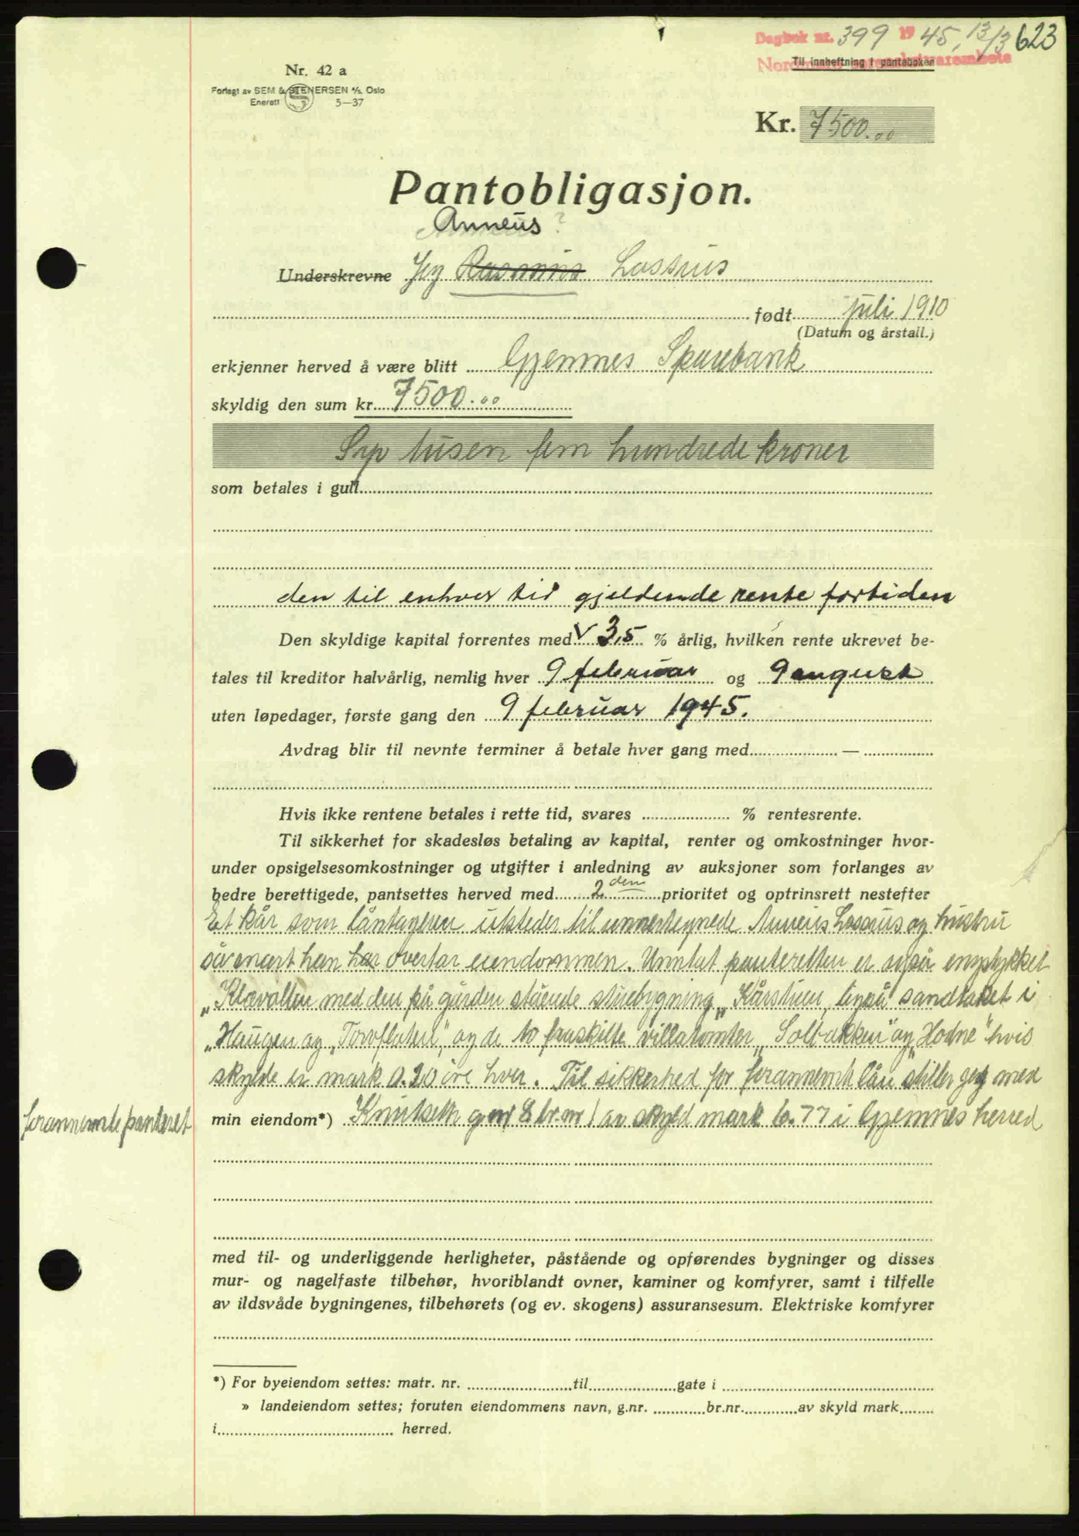 Dagbok nr. 399 1945, 13/3 623
Til innheftning i panteboken
Nr. 42 a
Forlagt av SEM & STENERSEN A/S, Oslo
Enerett 5—37
Kr. 7500.00
Pantobligasjon.
Anneus ?
Underskrevne Jeg Rasmus Lossius
født juli 1910
(Datum og årstall.)
erkjenner herved å være blitt Gjemnes Sparebank
skyldig den sum kr. 7500.00
Syv tusen fem hundrede kroner
som betales i gull
den til enhver tid gjeldende rente fortiden
Den skyldige kapital forrentes med 3,5 % årlig, hvilken rente ukrevet be-
tales til kreditor halvårlig, nemlig hver 9 februar og 9 august
uten løpedager, første gang den 9 februar 1945.
Avdrag blir til nevnte terminer å betale hver gang med —
Hvis ikke rentene betales i rette tid, svares % rentesrente.
Til sikkerhet for skadesløs betaling av kapital, renter og omkostninger hvor-
under opsigelsesomkostninger og utgifter i anledning av auksjoner som forlanges av
bedre berettigede, pantsettes herved med 2 den prioritet og optrinsrett nestefter
Et kår som låntageren utsteder til Anneus Lossius og hustru
såsnart han har overtar eiendommen. Unntat panteretten er også enstykket
„Klovollen med den på gården stående stuebygning „Kårstuen, sandtaket i
„Haugen og „Torvflaten", og de to fraskilte villatomter „Solbakken" og „Hodne" hvis
skylde er mark 0.20 øre hver. Til sikkerhed for forannevnt lån stiller jeg med
forannevnte panteret
min eiendom*) Knutseth g.nr 8 br.nr 1 av skyld mark 6.77 i Gjemnes herred
med til- og underliggende herligheter, påstående og opførendes bygninger og disses
mur- og nagelfaste tilbehør, hvoriblandt ovner, kaminer og komfyrer, samt i tilfelle
av ildsvåde bygningenes, tilbehørets (og ev. skogens) assuransesum. Elektriske komfyrer
*) For byeiendom settes: matr. nr. til gate i
» landeiendom settes; foruten eiendommens navn, g.nr. br.nr. av skyld mark
i herred.